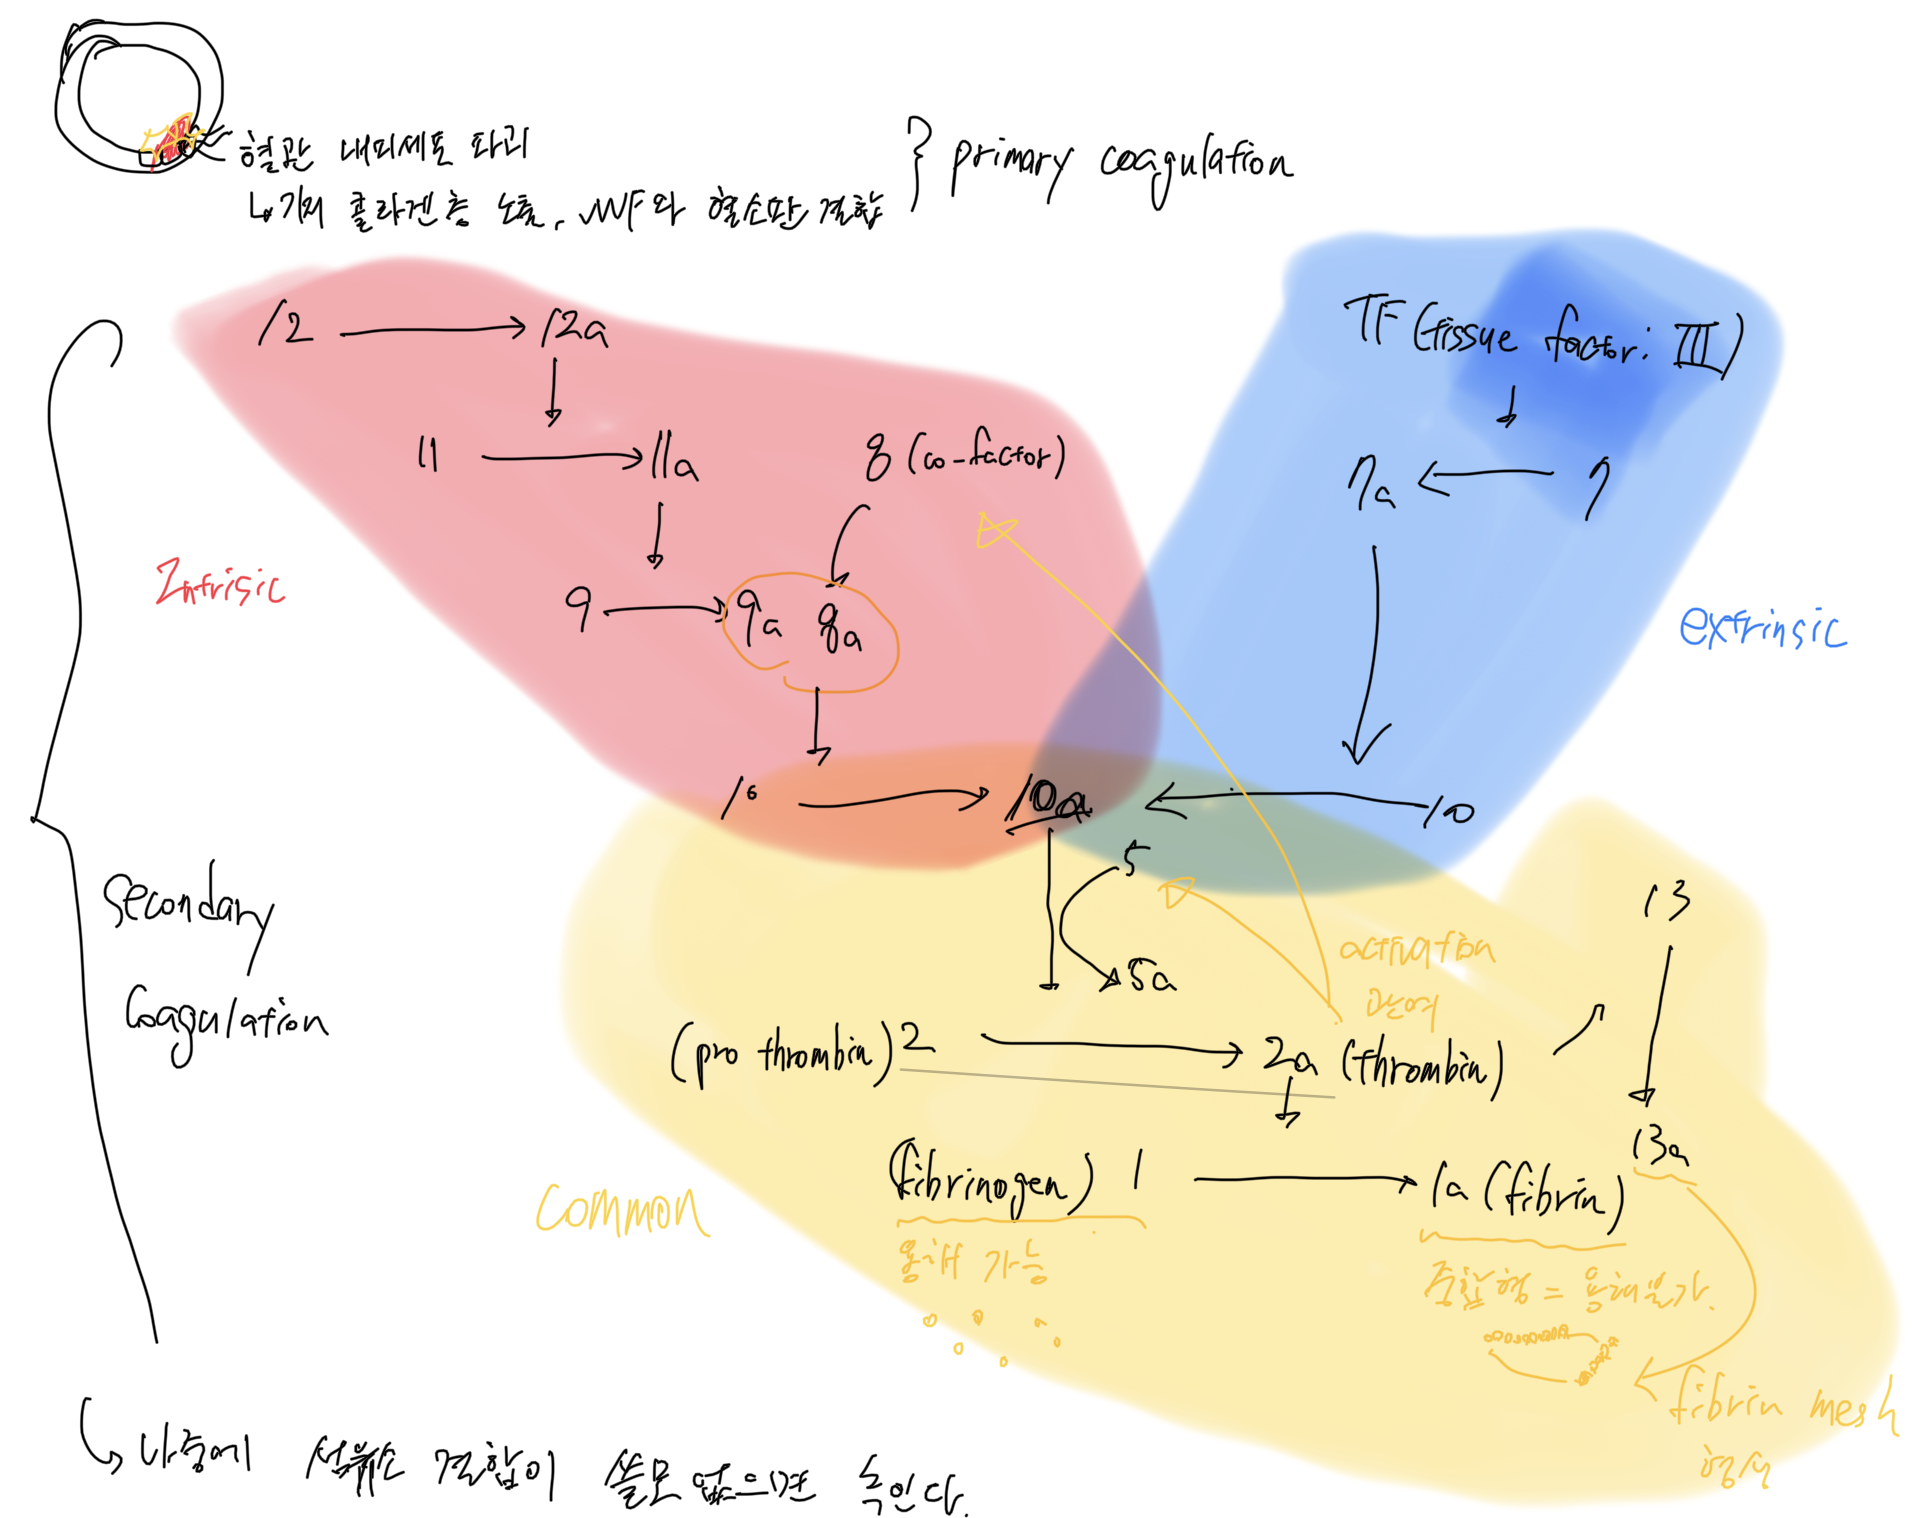 혈관 내피세포 파괴
↳ 기저 콜라겐층 노출, vWF와 혈소판 결합
} primary coagulation
12 → 12a
TF (tissue factor: III)
11 → 11a
8 (co-factor)
7a ← 7
Intrisic
9 → 9a 8a
extrinsic
10 → 10a ← 10
5
13
secondary
coagulation
activation
관여
5a
(pro thrombin) 2 → 2a (thrombin)
13a
(fibrinogen) 1 → 1a (fibrin)
common
용해 가능
중합형 = 용해불가.
fibrin mesh
형성
↳ 나중에 섬유소 결합이 쓸모 없으면 녹인다.